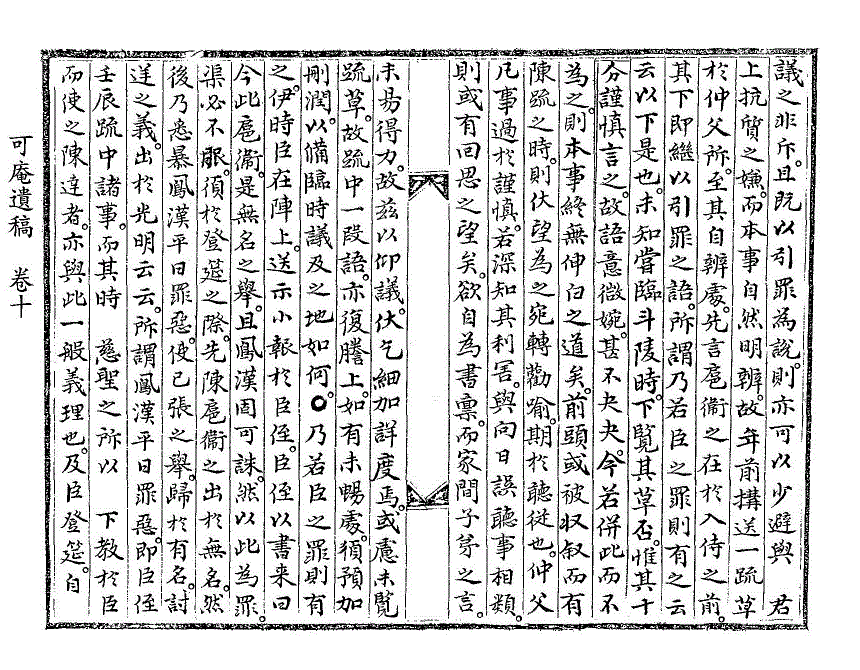 議之非斥。且既以引罪為說。則亦可以少避與 君
上抗質之嫌。而本事自然明辨。故年前搆送一疏草
於仲父所。至其自辨處。先言扈衞之在於入侍之前。
其下即繼以引罪之語。所謂乃若臣之罪則有之云
云以下是也。未知嘗臨斗陵時。下覽其草否。惟其十
分謹慎言之。故語意微婉。甚不夬夬。今若併此而不
為之。則本事終無伸白之道矣。前頭或被収叙而有
陳疏之時。則伏望為之宛轉勸喻。期於聽從也。仲父
凡事過於謹慎。若深知其利害。與向日誤聽事相類。
則或有回思之望矣。欲自為書稟。而家間子弟之言。
未易得力。故玆以仰議。伏乞細加詳度焉。或慮未覽
疏草。故疏中一段語。亦復謄上。如有未暢處。須預加
刪潤。以備臨時議及之地如何。○乃若臣之罪則有
之。伊時臣在陣上。送示小報於臣侄。臣侄以書来曰
今此扈衞。是無名之舉。且鳳漢固可誅。然以此為罪。
渠必不服。須於登筵之際。先陳扈衞之出於無名。然
後乃悉暴鳳漢平日罪惡。使已張之舉。歸於有名。討
逆之義。出於光明云云。所謂鳳漢平日罪惡。即臣侄
壬辰疏中諸事。而其時 慈聖之所以 下教於臣
而使之陳達者。亦與此一般義理也。及臣登筵。自
可庵遺稿 卷十